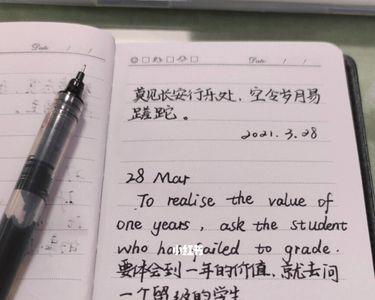 Date / /
Date / /
莫见长安行乐处，空令岁月易
蹉跎。
2021.3.28
28 Mar
To realise the value of
one years, ask the student
who has failed to grade.
小红书
要体会到一年的价值，就去问
一个留级的学生